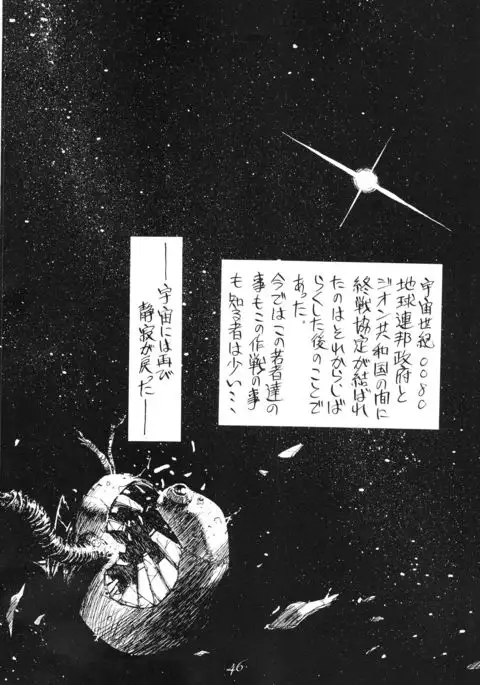 宇宙世紀0080
地球連邦政府と
ジオン共和国の間に
終戦協定が結ばれ
たのはそれからしば
らくした後のことで
あった。
今ではこの若者達の
事もこの作戦の事
も知る者は少い…
──宇宙には再び
静寂が戻った──
46